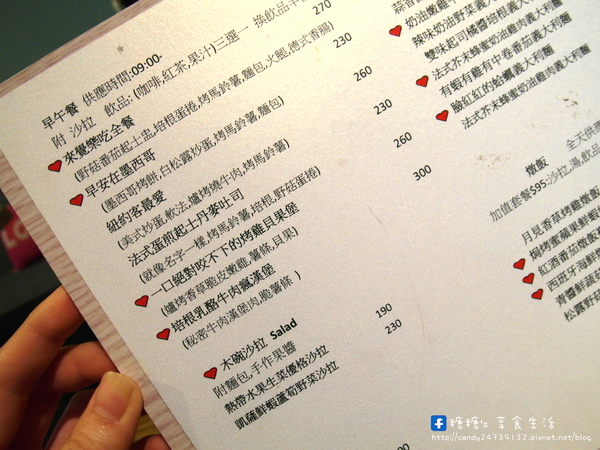 早午餐 供應時間:09:00-
附 沙拉 飲品:(咖啡,紅茶,果汁)三選一
270
來覺樂吃全餐
(野菇番茄起士盅,培根蛋捲,烤馬鈴薯,麵包,火腿,德式香腸)
230
早安在墨西哥
(墨西哥烤餅,白松露炒蛋,烤馬鈴薯,麵包)
260
紐約客最愛
(美式炒蛋,軟法,爐烤燒牛肉,烤馬鈴薯)
230
法式蛋煎起士丹麥吐司
(就像名字一樣,烤馬鈴薯,培根,野菇蛋捲)
260
一口絕對咬不下的烤雞貝果堡
(爐烤香草脆皮嫩雞,薯條,貝果)
300
培根乳酪牛肉瘋漢堡
(秘密牛肉漢堡肉,脆薯條)
木碗沙拉 Salad
附麵包,手作果醬
熱帶水果生菜優格沙拉
190
凱薩鮮蝦蘆筍野菜沙拉
230
奶油燉雞
辣味奶油野菜義大利麵
雙味起司橘醬培根義大利麵
法式芥末蜂蜜奶油雞肉義大利麵
有蝦有雞有中卷番茄義大利麵
臉紅紅的蛤蠣義大利麵
法式芥末蜂蜜奶油雞肉義大利麵
燉飯 全天供應
加值套餐$95:沙拉,湯,飲品
月見香草烤雞燉飯
焗烤蜜蘋果鮮蝦
紅酒番茄燉飯
西班牙海鮮
青醬鮮蔬
松露野菇
糖糖's 享食生活
http://candy24739132.pixnet.net/blog